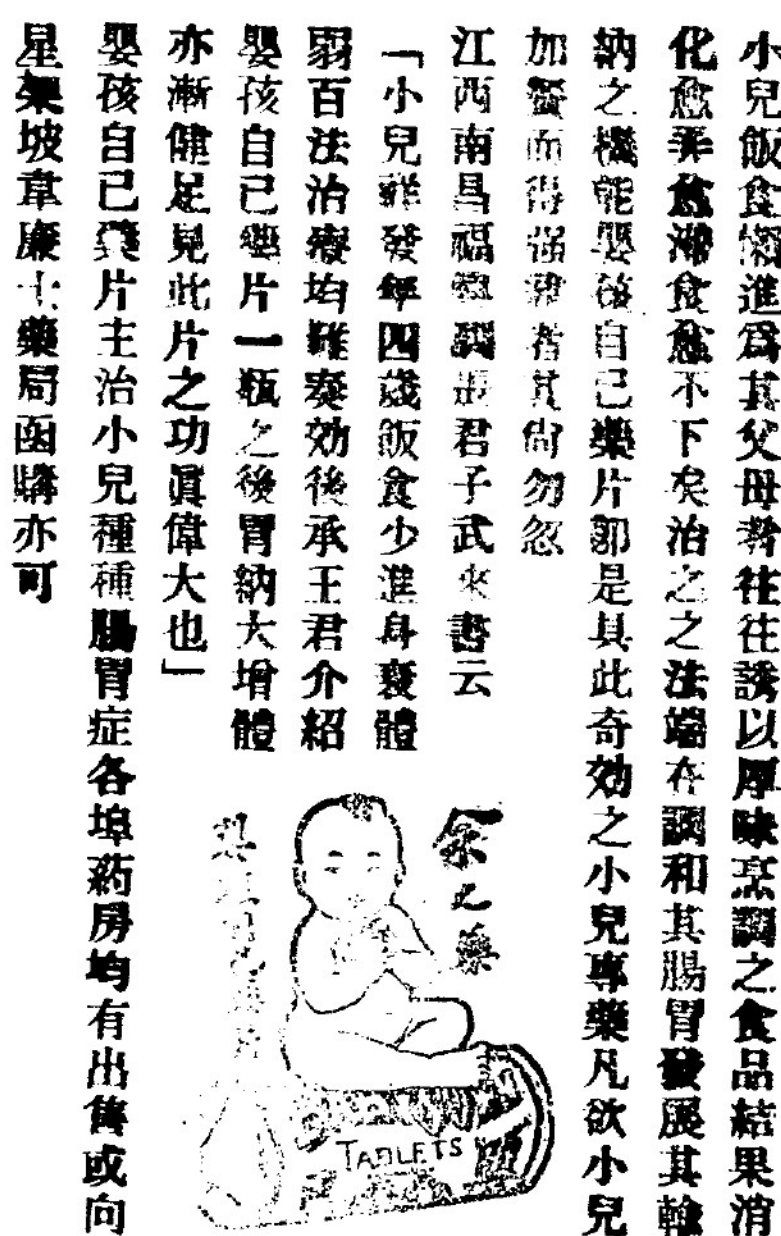 小兒飯食懶進爲其父母者往往誘以厚味烹調之食品結果消
化愈弄愈滯食愈不下矣治之之法端在調和其腸胃發展其輸
納之機能嬰孩自己藥片卽是具此奇効之小兒專藥凡欲小兒
加餐而得強健者其尙勿忽
江西南昌福音調張君子武來書云
「小兒祥發年四歲飯食少進身衰體
弱百法治療均難奏効後承王君介紹
嬰孩自己藥片一瓶之後胃納大增體
亦漸健足見此片之功眞偉大也」
嬰孩自己藥片主治小兒種種腸胃症各埠药房均有出售或向
星架坡韋廉士藥局函購亦可
余之藥
TABLETS